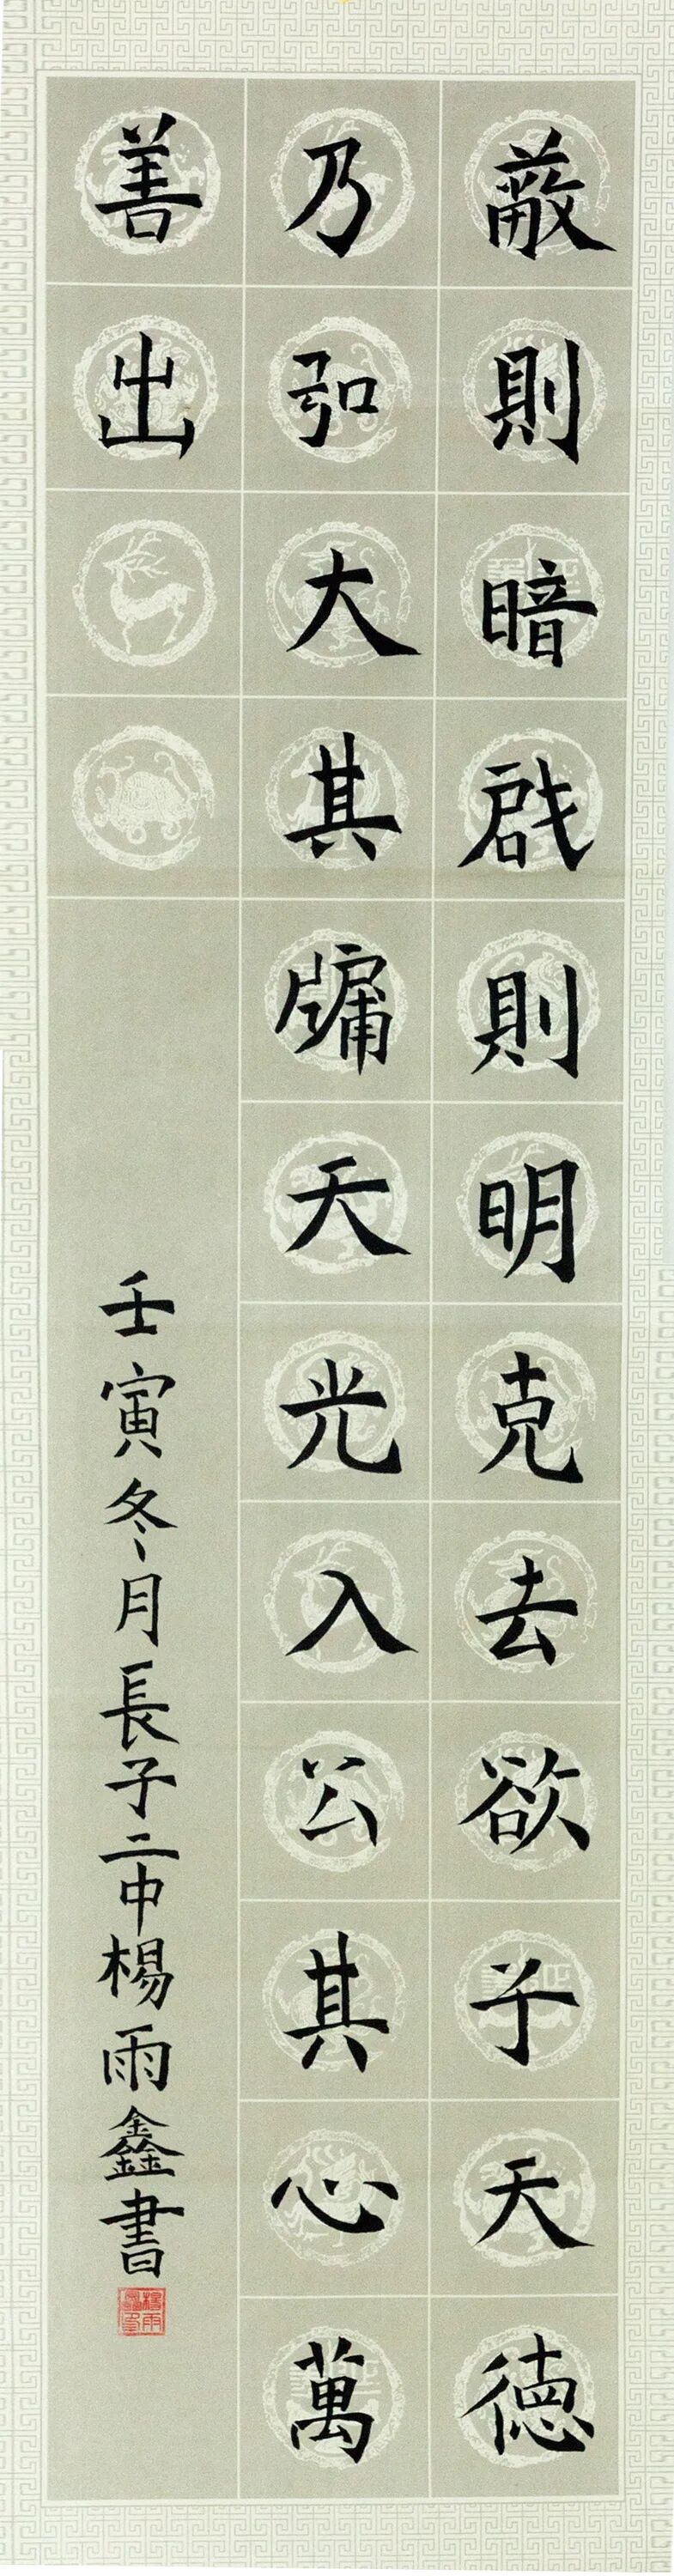 蔽則暗啟則明克去欲乎天德
乃弘大其牖天光入公其心萬
善出
壬寅冬月長子二中楊雨鑫書